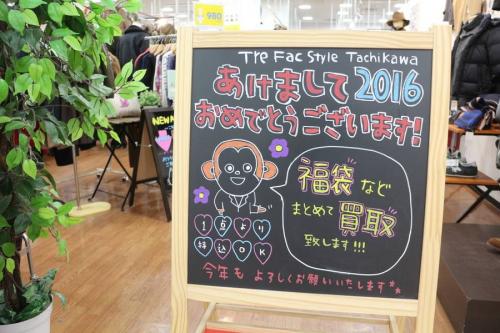 980
Tre Fac Style Tachikawa
あけまして 2016
おめでとうございます!
福袋など
まとめて買取
致します!!!
1点より
持込OK
今年も よろしくお願いいたします
NEW